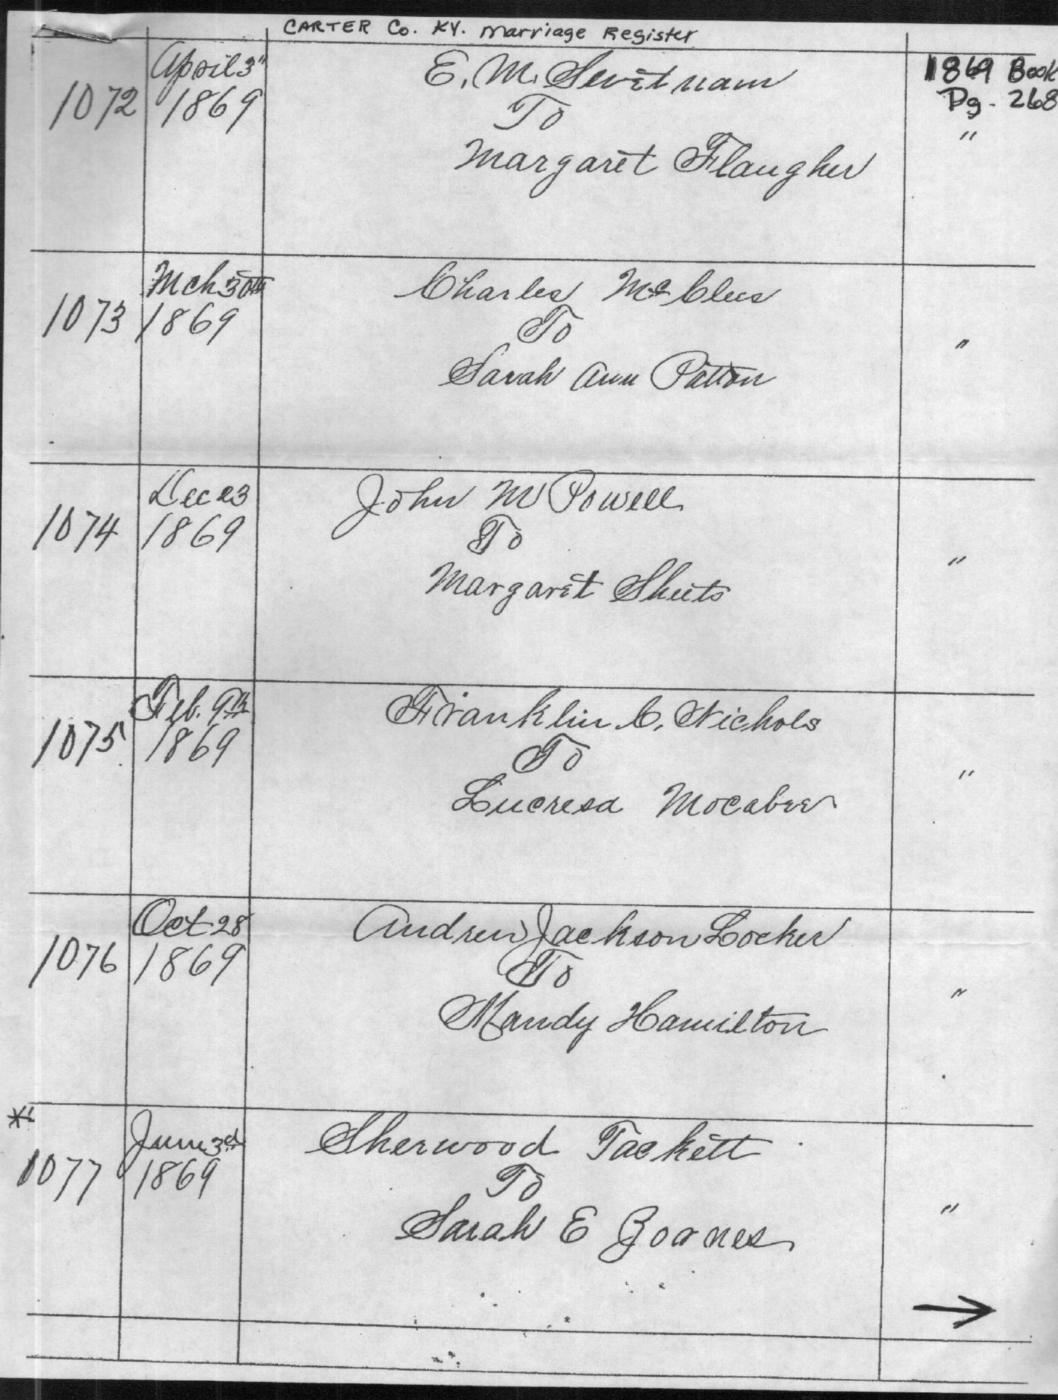 CARTER Co. KY. Marriage Register
1869 Book
Pg. 268
1072 April 3" 1869
E. M.
To
Margaret Flaugher
"
1073 Mch 30th 1869
Charles
To
Sarah Ann Patton
"
1074 Dec 23 1869
John M Powell
To
Margaret Sheets
"
1075 Feb. 9th 1869
Franklin C. Nichols
To
Lucresa Mocabee
"
1076 Oct 28 1869
Andrew Jackson Locker
To
Mandy Hamilton
"
* 1077 June 3d 1869
Sherwood Tackett
To
Sarah E
"